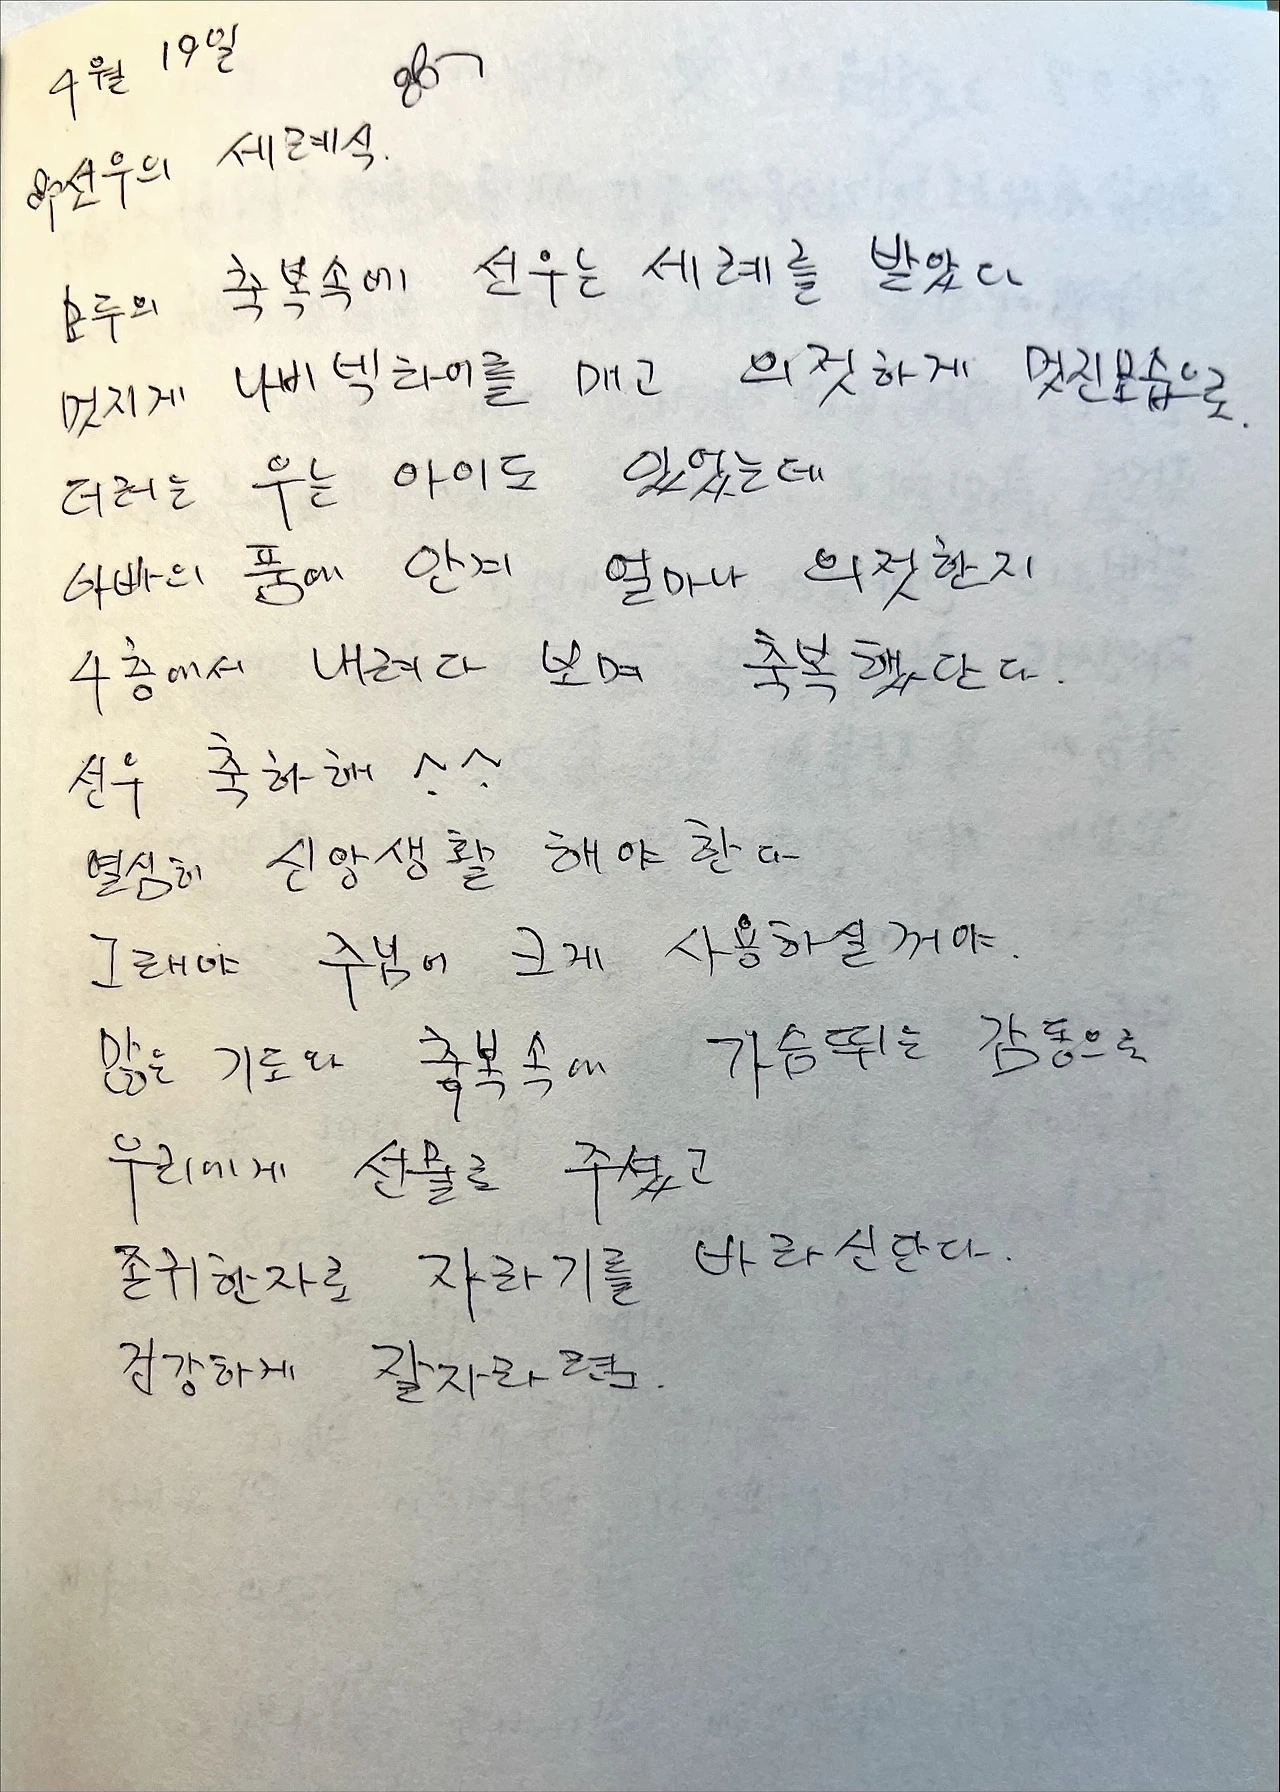 4월 19일
선우의 세례식.
모두의 축복속에 선우는 세례를 받았다
멋지게 나비넥타이를 매고 의젓하게 멋진모습으로.
더러는 우는 아이도 있었는데
아빠의 품에 안겨 얼마나 의젓한지
4층에서 내려다 보며 축복했단다.
선우 축하해 ^.^.
열심히 신앙생활 해야 한다
그래야 주님이 크게 사용하실거야.
많은 기도와 축복속에 가슴뛰는 감동으로
우리에게 선물로 주셨고
존귀한자로 자라기를 바라신단다.
건강하게 잘자라렴.